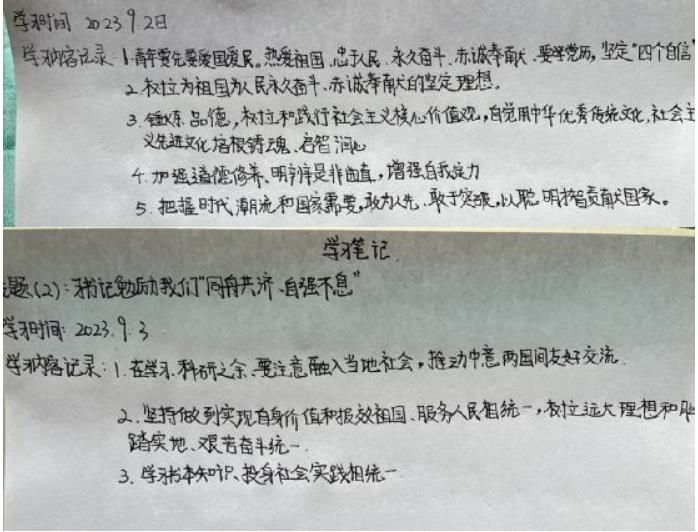 学习时间 2023.9.2日
学习内容记录：1.青年要先要爱国爱民。热爱祖国、忠于人民、永久奋斗、赤诚奉献、要学党历，坚定"四个自信
2.树立为祖国为人民永久奋斗、赤诚奉献的坚定理想。
3.锤炼品德，树立和践行社会主义核心价值观，自觉用中华优秀传统文化、社会主
义先进文化培根铸魂、启智润心
4.加强道德修养、明辨是非曲直，增强自我定力
5.把握时代潮流和国家需要，敢为人先、敢于突破，以聪明才智贡献国家。
学习笔记
题（2）：习书记勉励我们"同舟共济、自强不息"
学习时间：2023.9.3
学习内容记录：1.在学习、科研之余、要注意融入当地社会，推动中意两国间友好交流.
2.坚持做到实现自身价值和报效祖国、服务人民相统一，树立远大理想和
踏实地、艰苦奋斗统一.
3.学习书本知识、投身社会实践相统一